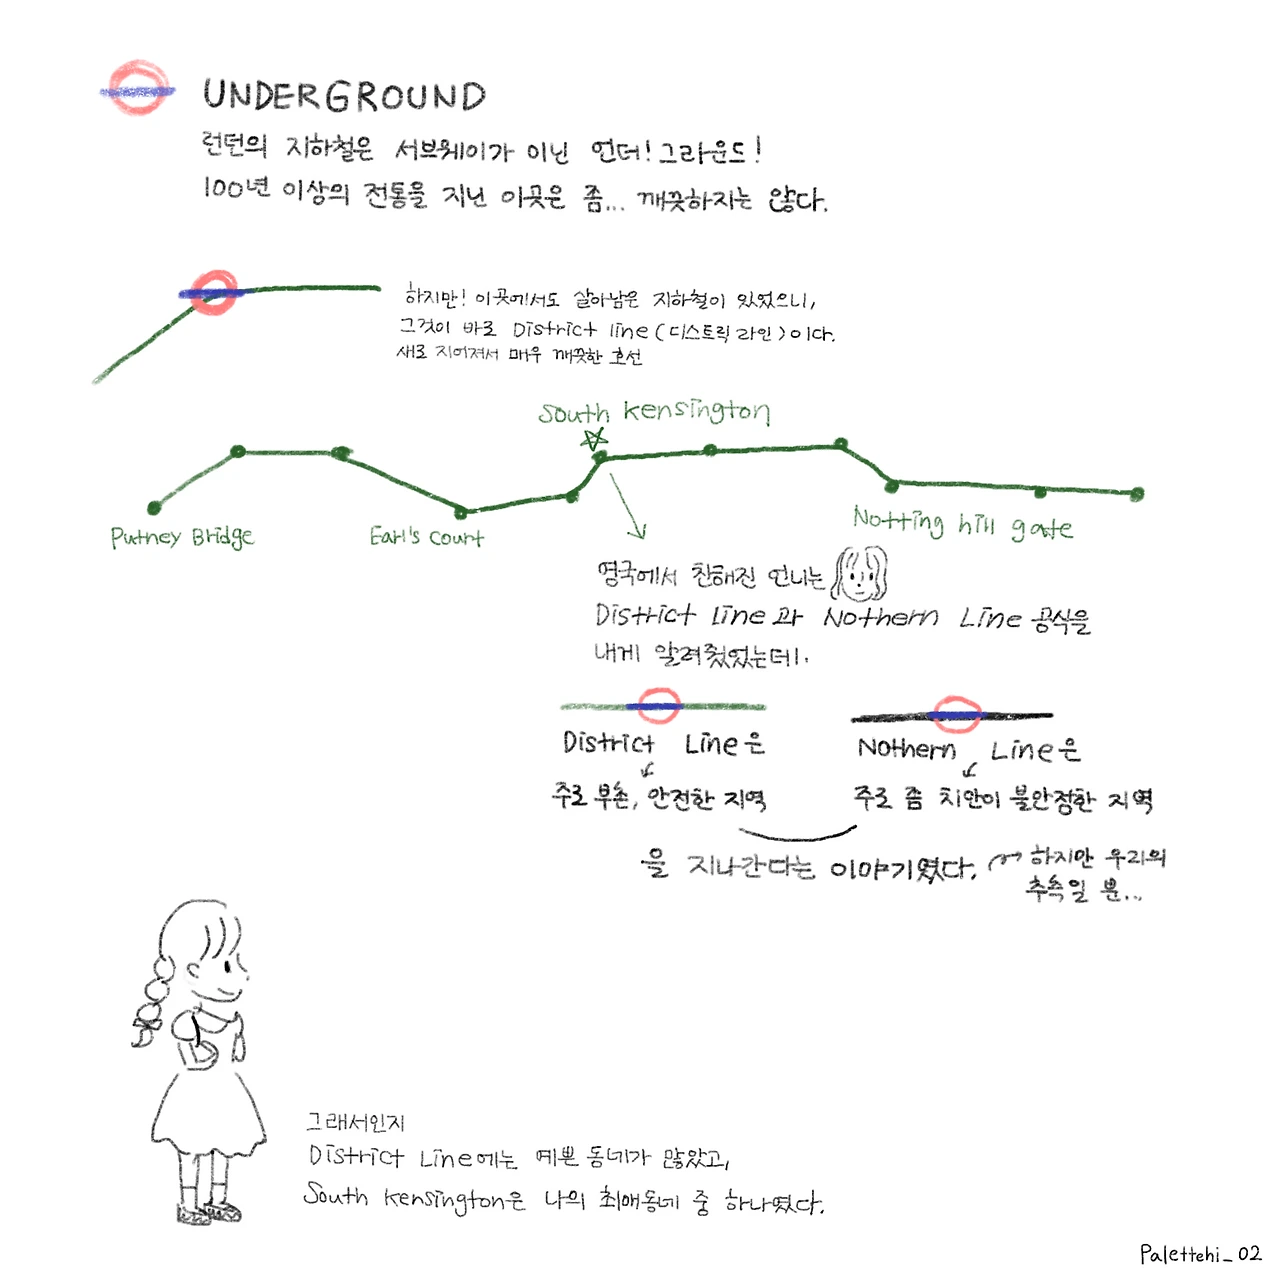 UNDERGROUND
런던의 지하철은 서브웨이가 아닌 언더! 그라운드!
100년 이상의 전통을 지닌 이곳은 좀... 깨끗하지는 않다.
하지만! 이곳에서도 살아남은 지하철이 있었으니,
그것이 바로 District line (디스트릭 라인) 이다.
새로 지어져서 매우 깨끗한 호선
South Kensington
Putney Bridge
Earl's Court
Notting hill gate
영국에서 친해진 언니는
District Line과 Nothern Line 공식을
내게 알려줬었는데!.
District Line은
주로 부촌, 안전한 지역
Nothern Line은
주로 좀 치안이 불안정한 지역
을 지나간다는 이야기였다.
하지만 우리의
추측일 뿐...
그래서인지
District Line에는 예쁜 동네가 많았고,
South Kensington은 나의 최애동네 중 하나였다.
Palettehi_02